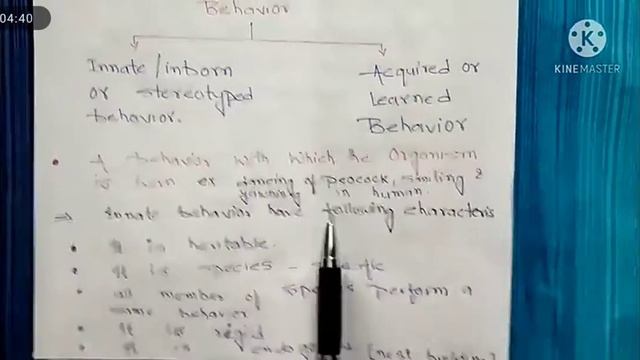 04:40
Behavior
KINEMASTER
Innate/inborn
or stereotyped
behavior.
Acquired or
Learned
Behavior
A behavior with which the Organism
is born ex dancing of Peacock, smiling &
yawning in human.
Innate behavior have following characteris
It is heritable.
It is species -
all member of species perform a
same behavior
It is rigid
It is